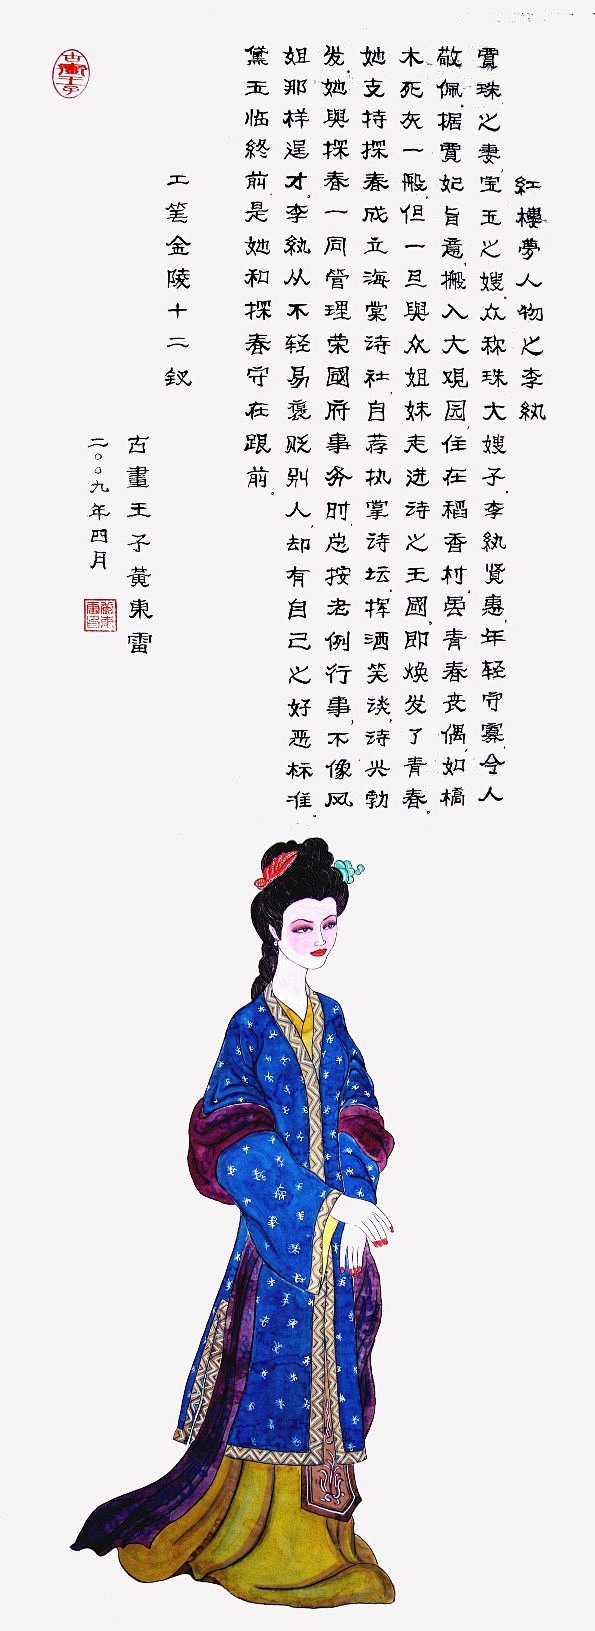 紅樓夢人物之李紈
賈珠之妻,宝玉之嫂。众称珠大嫂子.李紈贤惠,年轻守寡,令人
敬佩.据賈妃旨意,搬入大观园,住在稻香村.虽青春丧偶,如槁
木死灰一般,但一旦與众姐妹走进诗之王國,即焕发了青春。
她支持探春成立海棠诗社,自荐执掌诗坛,挥洒笑谈,诗兴勃
发.她與探春一同管理荣國府事务时,总按老例行事,不像凤
姐那样逞才.李紈从不轻易褒贬别人,却有自己之好恶标准。
黛玉临終前是她和探春守在跟前。
工笔金陵十二釵
古畫王子黃東雷
二〇〇九年四月